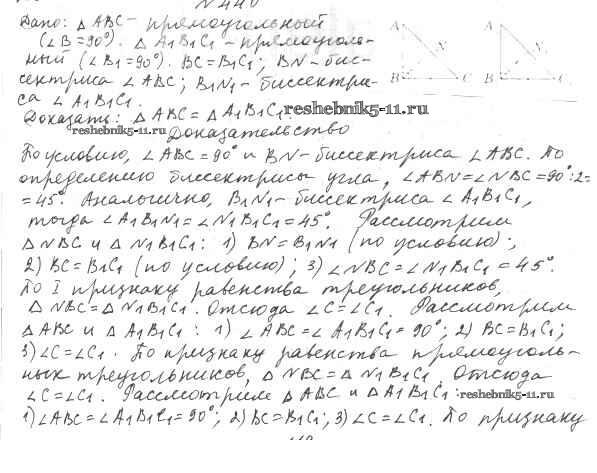 №440
Дано: △ABC - прямоугольный
(∠B=90°). △A1B1C1 - прямоуголь-
ный (∠B1=90°). BC=B1C1; BN - бис-
сектриса ∠ABC; B1N1 - биссектри-
са ∠A1B1C1.
A
N
B
C
A
N
B
C
Доказать: △ABC = △A1B1C1.
reshebnik5-11.ru
reshebnik5-11.ru
Доказательство
По условию, ∠ABC=90° и BN - биссектриса ∠ABC. По
определению биссектрисы угла, ∠ABN=∠NBC=90°:2=
=45°. Аналогично, B1N1 - биссектриса ∠A1B1C1,
тогда ∠A1B1N1=∠N1B1C1=45°. Рассмотрим
△NBC и △N1B1C1: 1) BN=B1N1 (по условию);
2) BC=B1C1 (по условию); 3) ∠NBC=∠N1B1C1=45°.
По I признаку равенства треугольников,
△NBC=△N1B1C1. Отсюда ∠C=∠C1. Рассмотрим
△ABC и △A1B1C1: 1) ∠ABC=∠A1B1C1=90°; 2) BC=B1C1;
3) ∠C=∠C1. По признаку равенства прямоуголь-
ных треугольников, △NBC=△N1B1C1. Отсюда
∠C=∠C1. Рассмотрим △ABC и △A1B1C1:
reshebnik5-11.ru
1) ∠ABC=∠A1B1C1=90°; 2) BC=B1C1; 3) ∠C=∠C1. По признаку